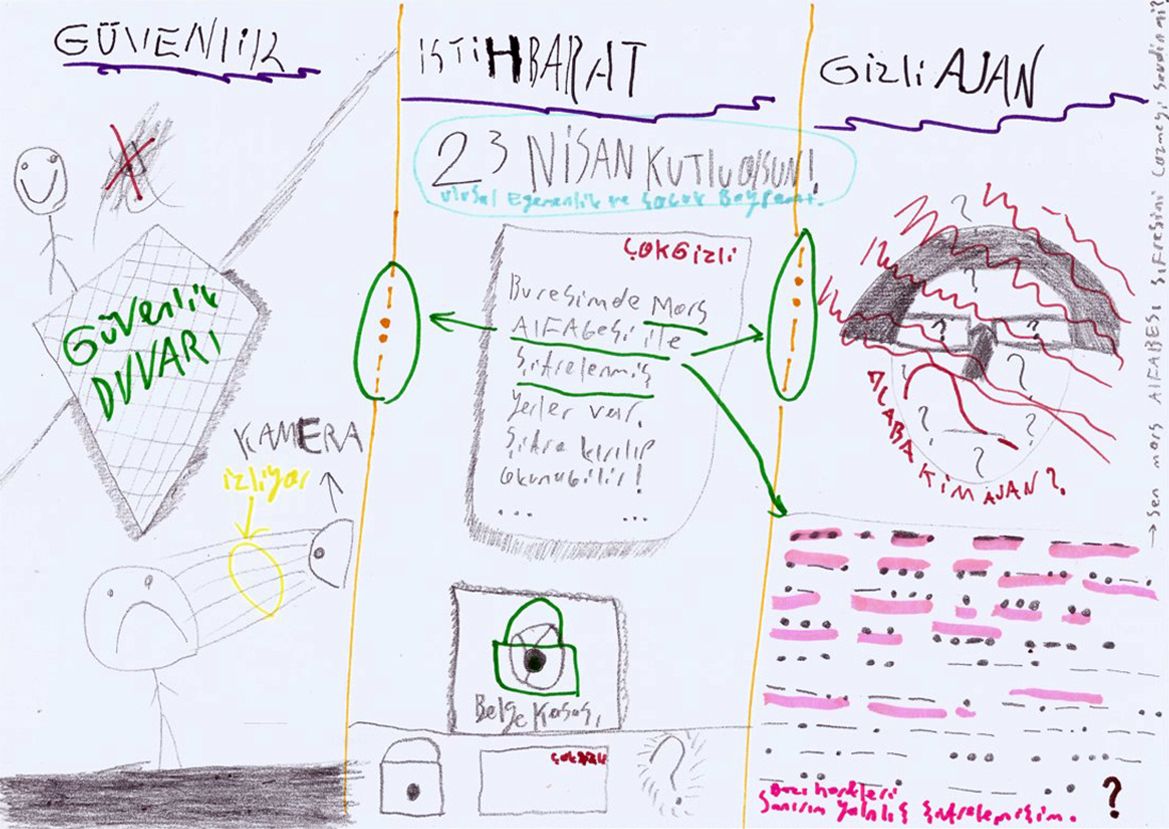 GÜVENLİK
Güvenlik
DUVARI
KAMERA
izliyor
iSTiHBARAT
23 NiSAN KUTLU OlSUN!
Ulusal Egemenlik ve Çocuk Bayramı.
ÇOK Gizli
Bu resimde Mors
AlFABesi iLe
Şifrelenmiş
Yerler var.
Şifre kırılıp
okunabilir!
... ...
Belge Kasası
ÇOK Gizli
Gizli AJAN
ACABA KiM AJAN?
Bazı harfleri
Sanırım yanlış Şifrelemişim.
?
→ Sen mors AlFABESi ŞiFRESiNi Çözmeyi Sevdin mi?